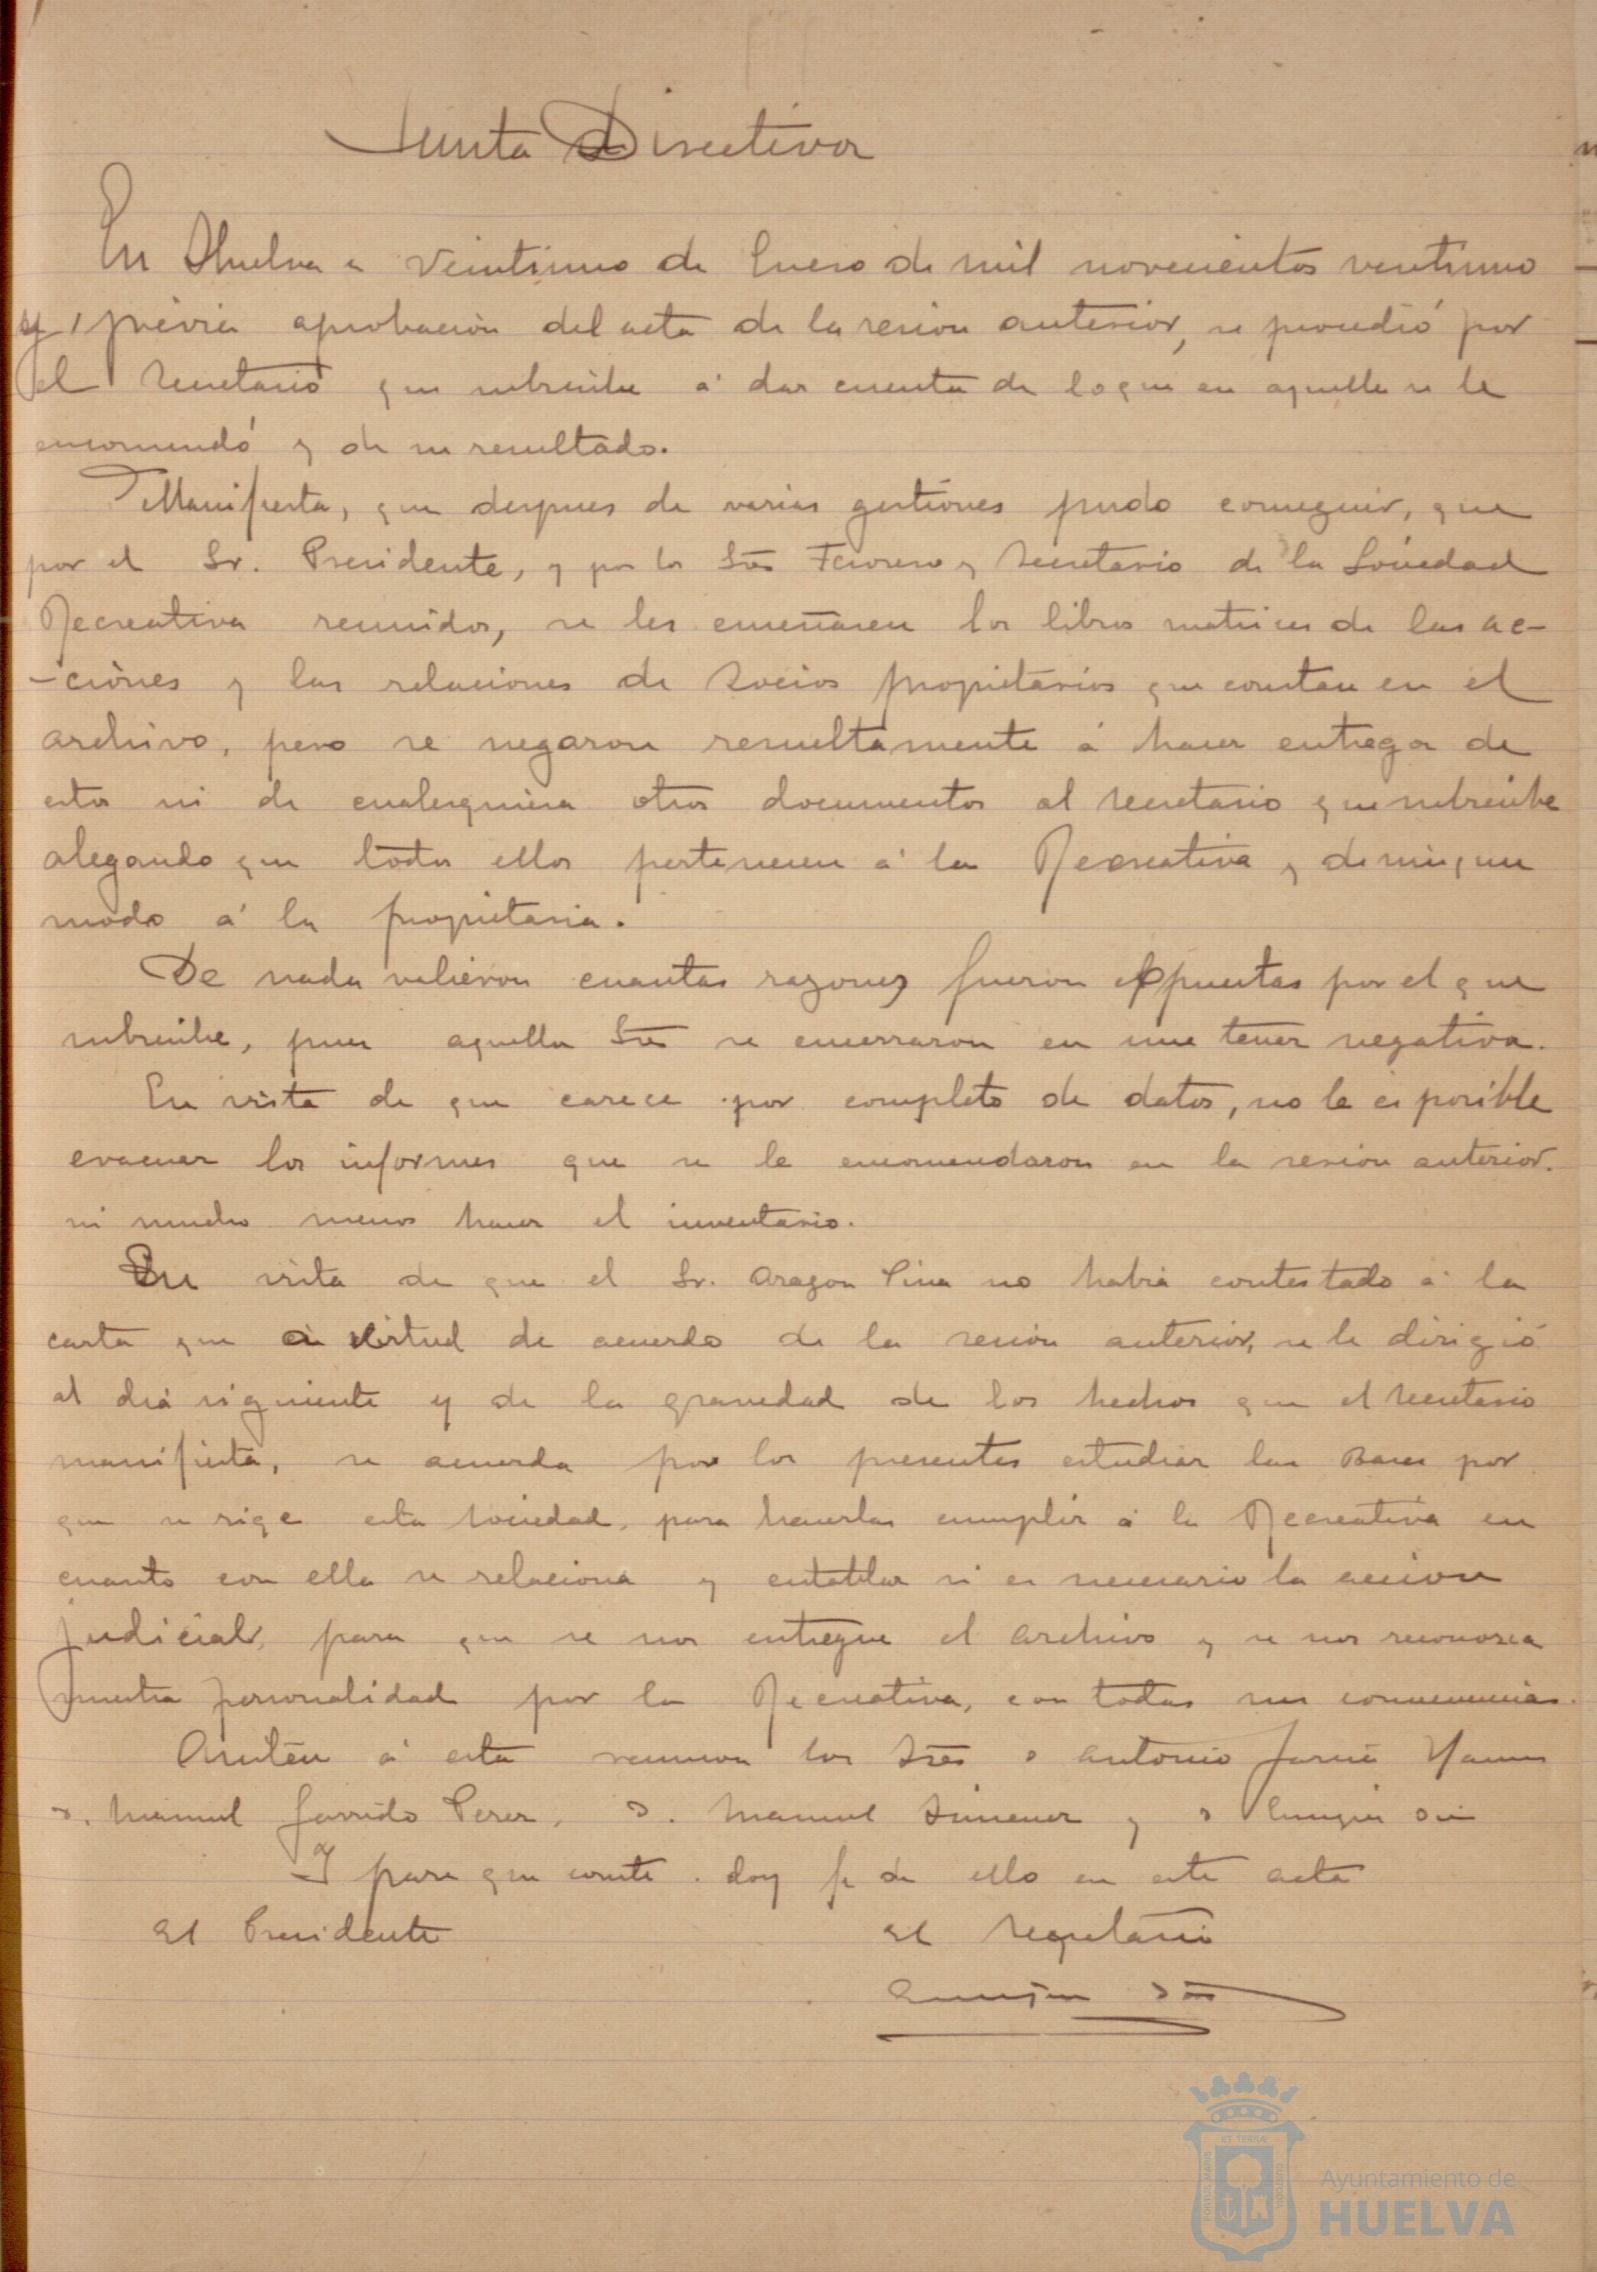 Junta Directiva
En Huelva a veintiuno de Enero de mil novecientos ventiuno
y, prévia aprobación del acta de la sesion anterior, se procedió por
el Secretario que subscribe á dar cuenta de lo que en aquella se le
encomendó y de su resultado.
Manifiesta, que despues de varias gestiones pudo conseguir, que
por el Sr. Presidente, y por los Srs Tesorero y Secretario de la Sociedad
Recreativa reunidos, se les enseñasen los libros matrices de las ac-
-ciónes y las relaciones de Socios propietarios que constan en el
archivo, pero se negaron resueltamente á hacer entrega de
estos ni de cualesquiera otros documentos al Secretario que subscribe
alegando que todos ellos pertenecen á la Recreativa y de ningun
modo á la propietaria.
De nada valieron cuantas razones fueron expuestas por el que
subscribe, pues aquellos Srs se encerraron en una tenaz negativa.
En vista de que carece por completo de datos, no le es posible
evacuar los informes que se le encomendaron en la sesion anterior.
ni mucho menos hacer el inventario.
En vista de que el Sr. Aragon Pina no habia contestado á la
carta que á virtud de acuerdo de la sesion anterior, se le dirigió
al dia siguiente y de la gravedad de los hechos que el Secretario
manifiesta, se acuerda por los presentes estudiar las Bases por
que se rige esta Sociedad, para hacerlas cumplir á la Recreativa en
cuanto con ella se relaciona y entablar si es necesario la accion
judicial, para que se nos entregue el archivo y se nos reconozca
nuestra personalidad por la Recreativa, con todas sus consecuencias.
Asisten á esta reunion los Srs D Antonio
D. Manuel Garrido Perez, D. Manuel Jimenez y D
Y para que conste. doy fe de ello en este acta
El Presidente El Secretario
Ayuntamiento de
HUELVA